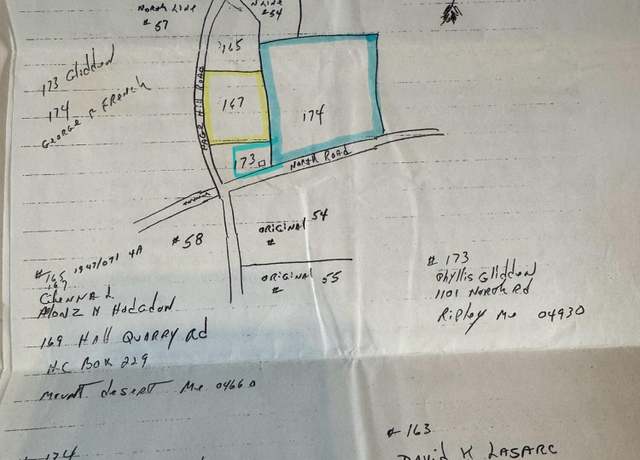 North Line
# 57
N Line
# 54
165
173 Gliddon
174
George French
167
174
173
North Road
Original 54
#
# 58
Original 55
#
# 165 1947/071 4A
167
Hodgdon
169 Hall Quarry Rd
H.C Box 229
Mount Desert Me 04660
# 173
Phyllis Gliddon
1101 North Rd
Ripley Me 04930
# 174
# 163
David K Lasarc